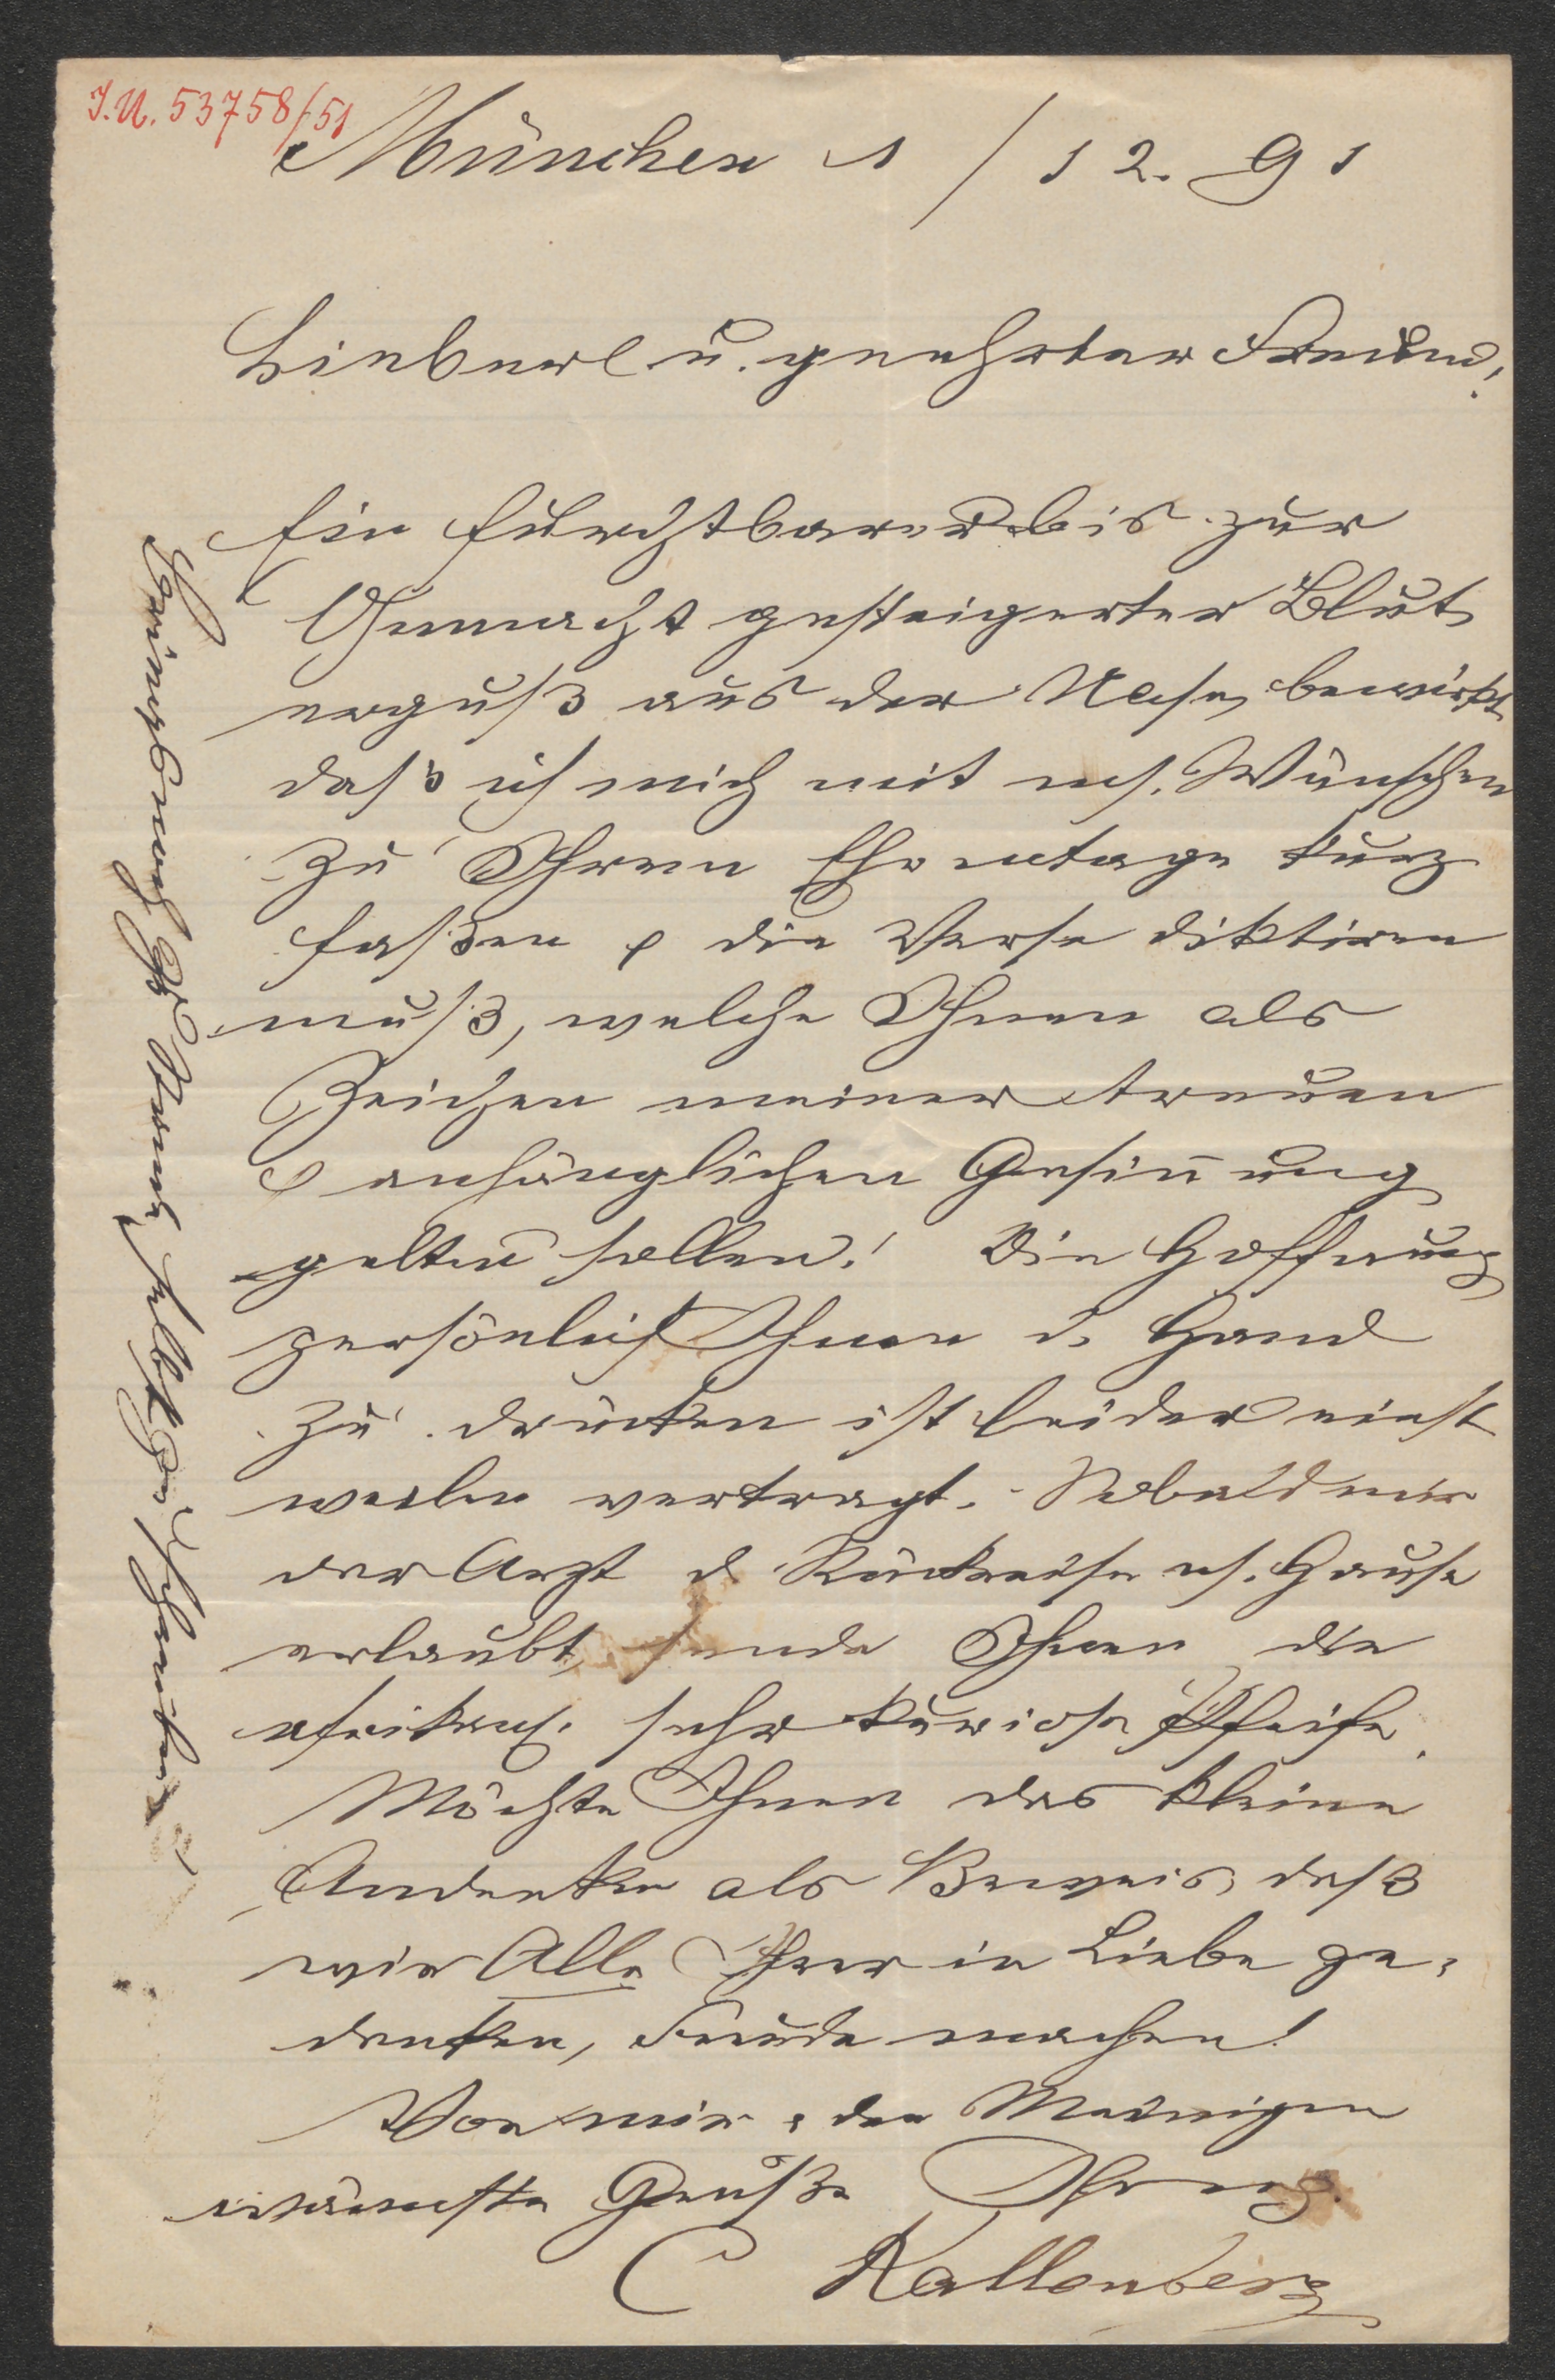 J.N. 53758/51
München 1/12. 91
Lieber u. geehrter Freund!
Ein furchtbarer bis zur
Ohnmacht gesteigerter Blut
erguß aus der Nase, bewirkt
daß ich mich mit m. Wünschen
zu Ihrem Ehrentage kurz
faßen & die Verse diktiren
muß, welche Ihnen als
Zeichen meiner treuen
& anhänglichen Gesinnung
gelten sollen! Die Hoffnung
persönlich Ihnen d. Hand
zu drücken ist leider einst
weilen vertagt. Sobald mir
der Arzt d. Rückreise n. Hause
erlaubt, sende Ihnen die
afrikan. sehr kuriose Pfeife.
Möchte Ihnen das kleine
Andenken als Beweis, daß
wir Alle Ihrer in Liebe ge-
denken, Freude machen!
Von mir & den Meinigen
wärmste Grüße Ihr erg.
C Kallenberg